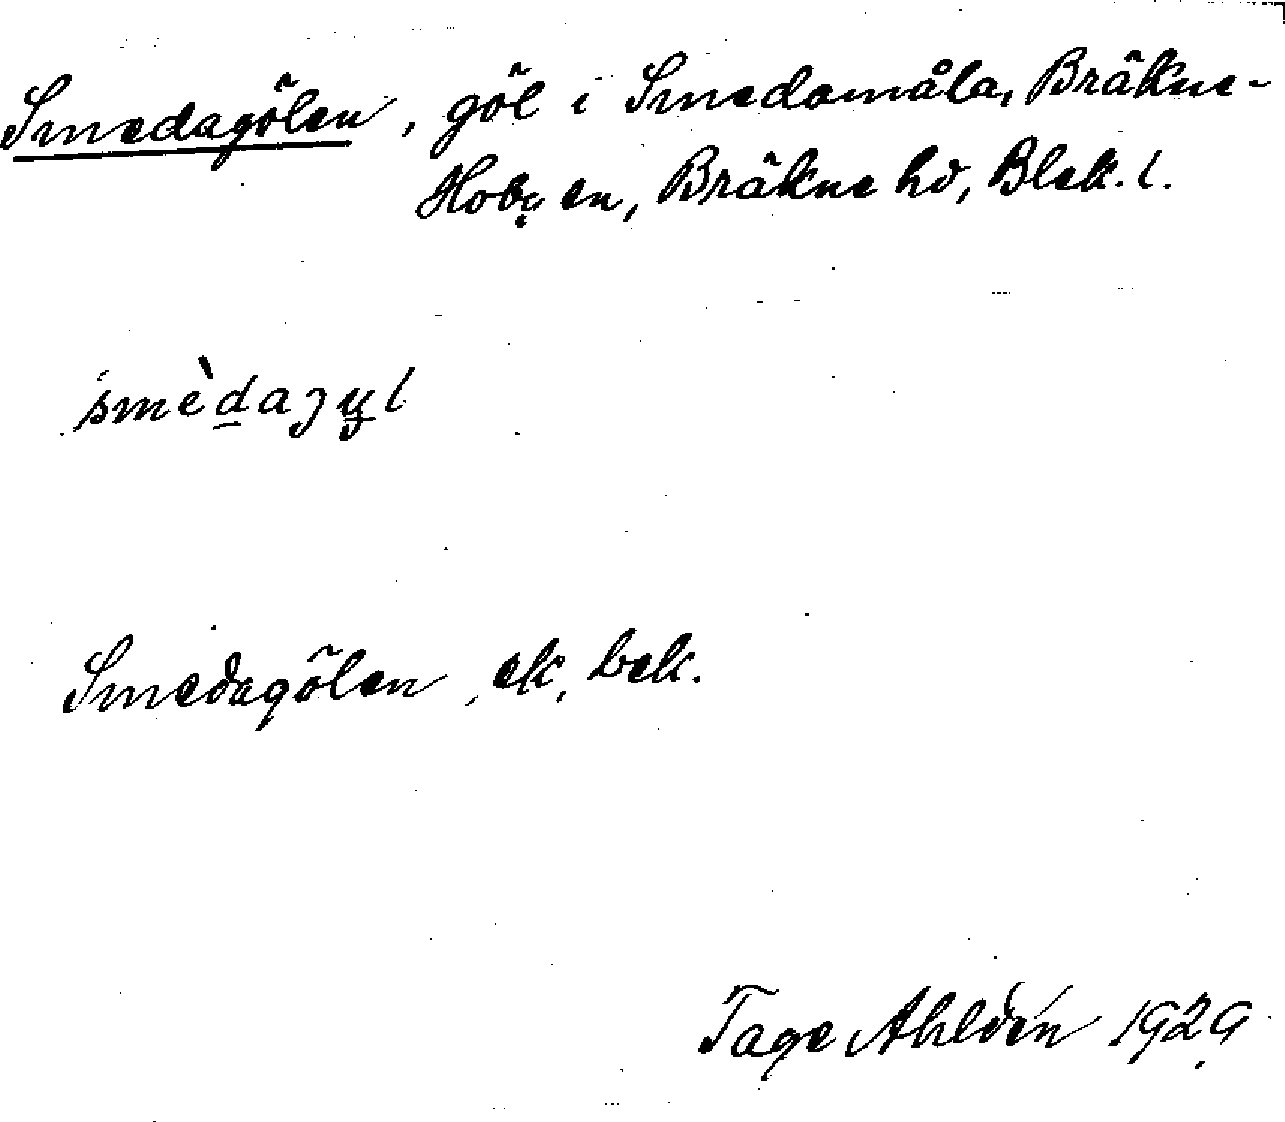 Smedagölen, göl i Smedamåla, Bräkne-
Hoby sn, Bräkne hd, Blek. l.
smèdaȷyl
Smedagölen, ek. bek.
Tage Ahldén 1929